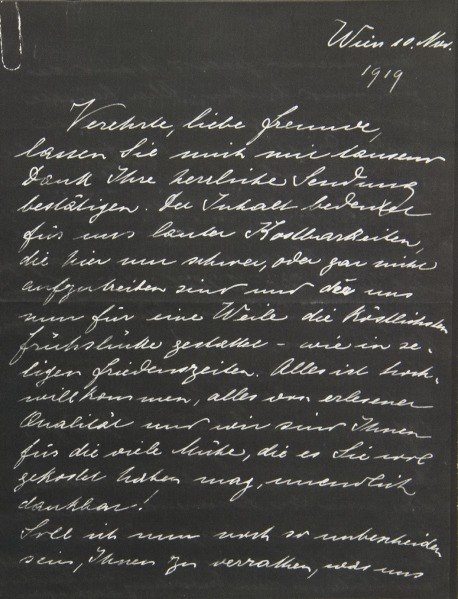 Wien 10. Nov.
1919
Verehrte, liebe Freunde,
lassen Sie mich mit tausend
Dank Ihre herrliche Sendung
bestätigen. Der Inhalt bedeutet
für uns lauter Kostbarkeiten,
die hier nur schwer, oder gar nicht
aufzutreiben sind und die uns
nun für eine Weile die köstlichsten
Frühstücke gestattet – wie in se-
ligen Friedenszeiten. Alles ist hoch-
willkommen, alles von erlesener
Qualität und wir sind Ihnen
für die viele Mühe, die es Sie wol
gekostet haben mag, unendlich
dankbar!
Soll ich nun noch so unbescheiden
sein, Ihnen zu verrathen, was uns